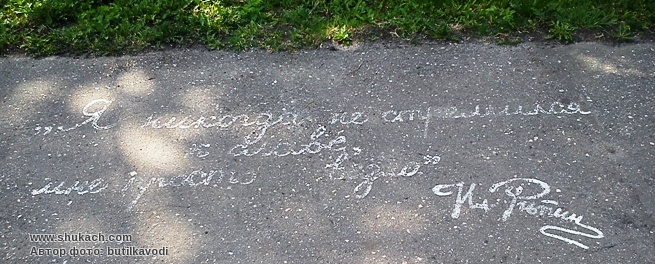 „Я никогда не стремился
к славе,
мне просто везло"
Ил Рѣпин
www.shukach.com
Автор фото: butilkavodi